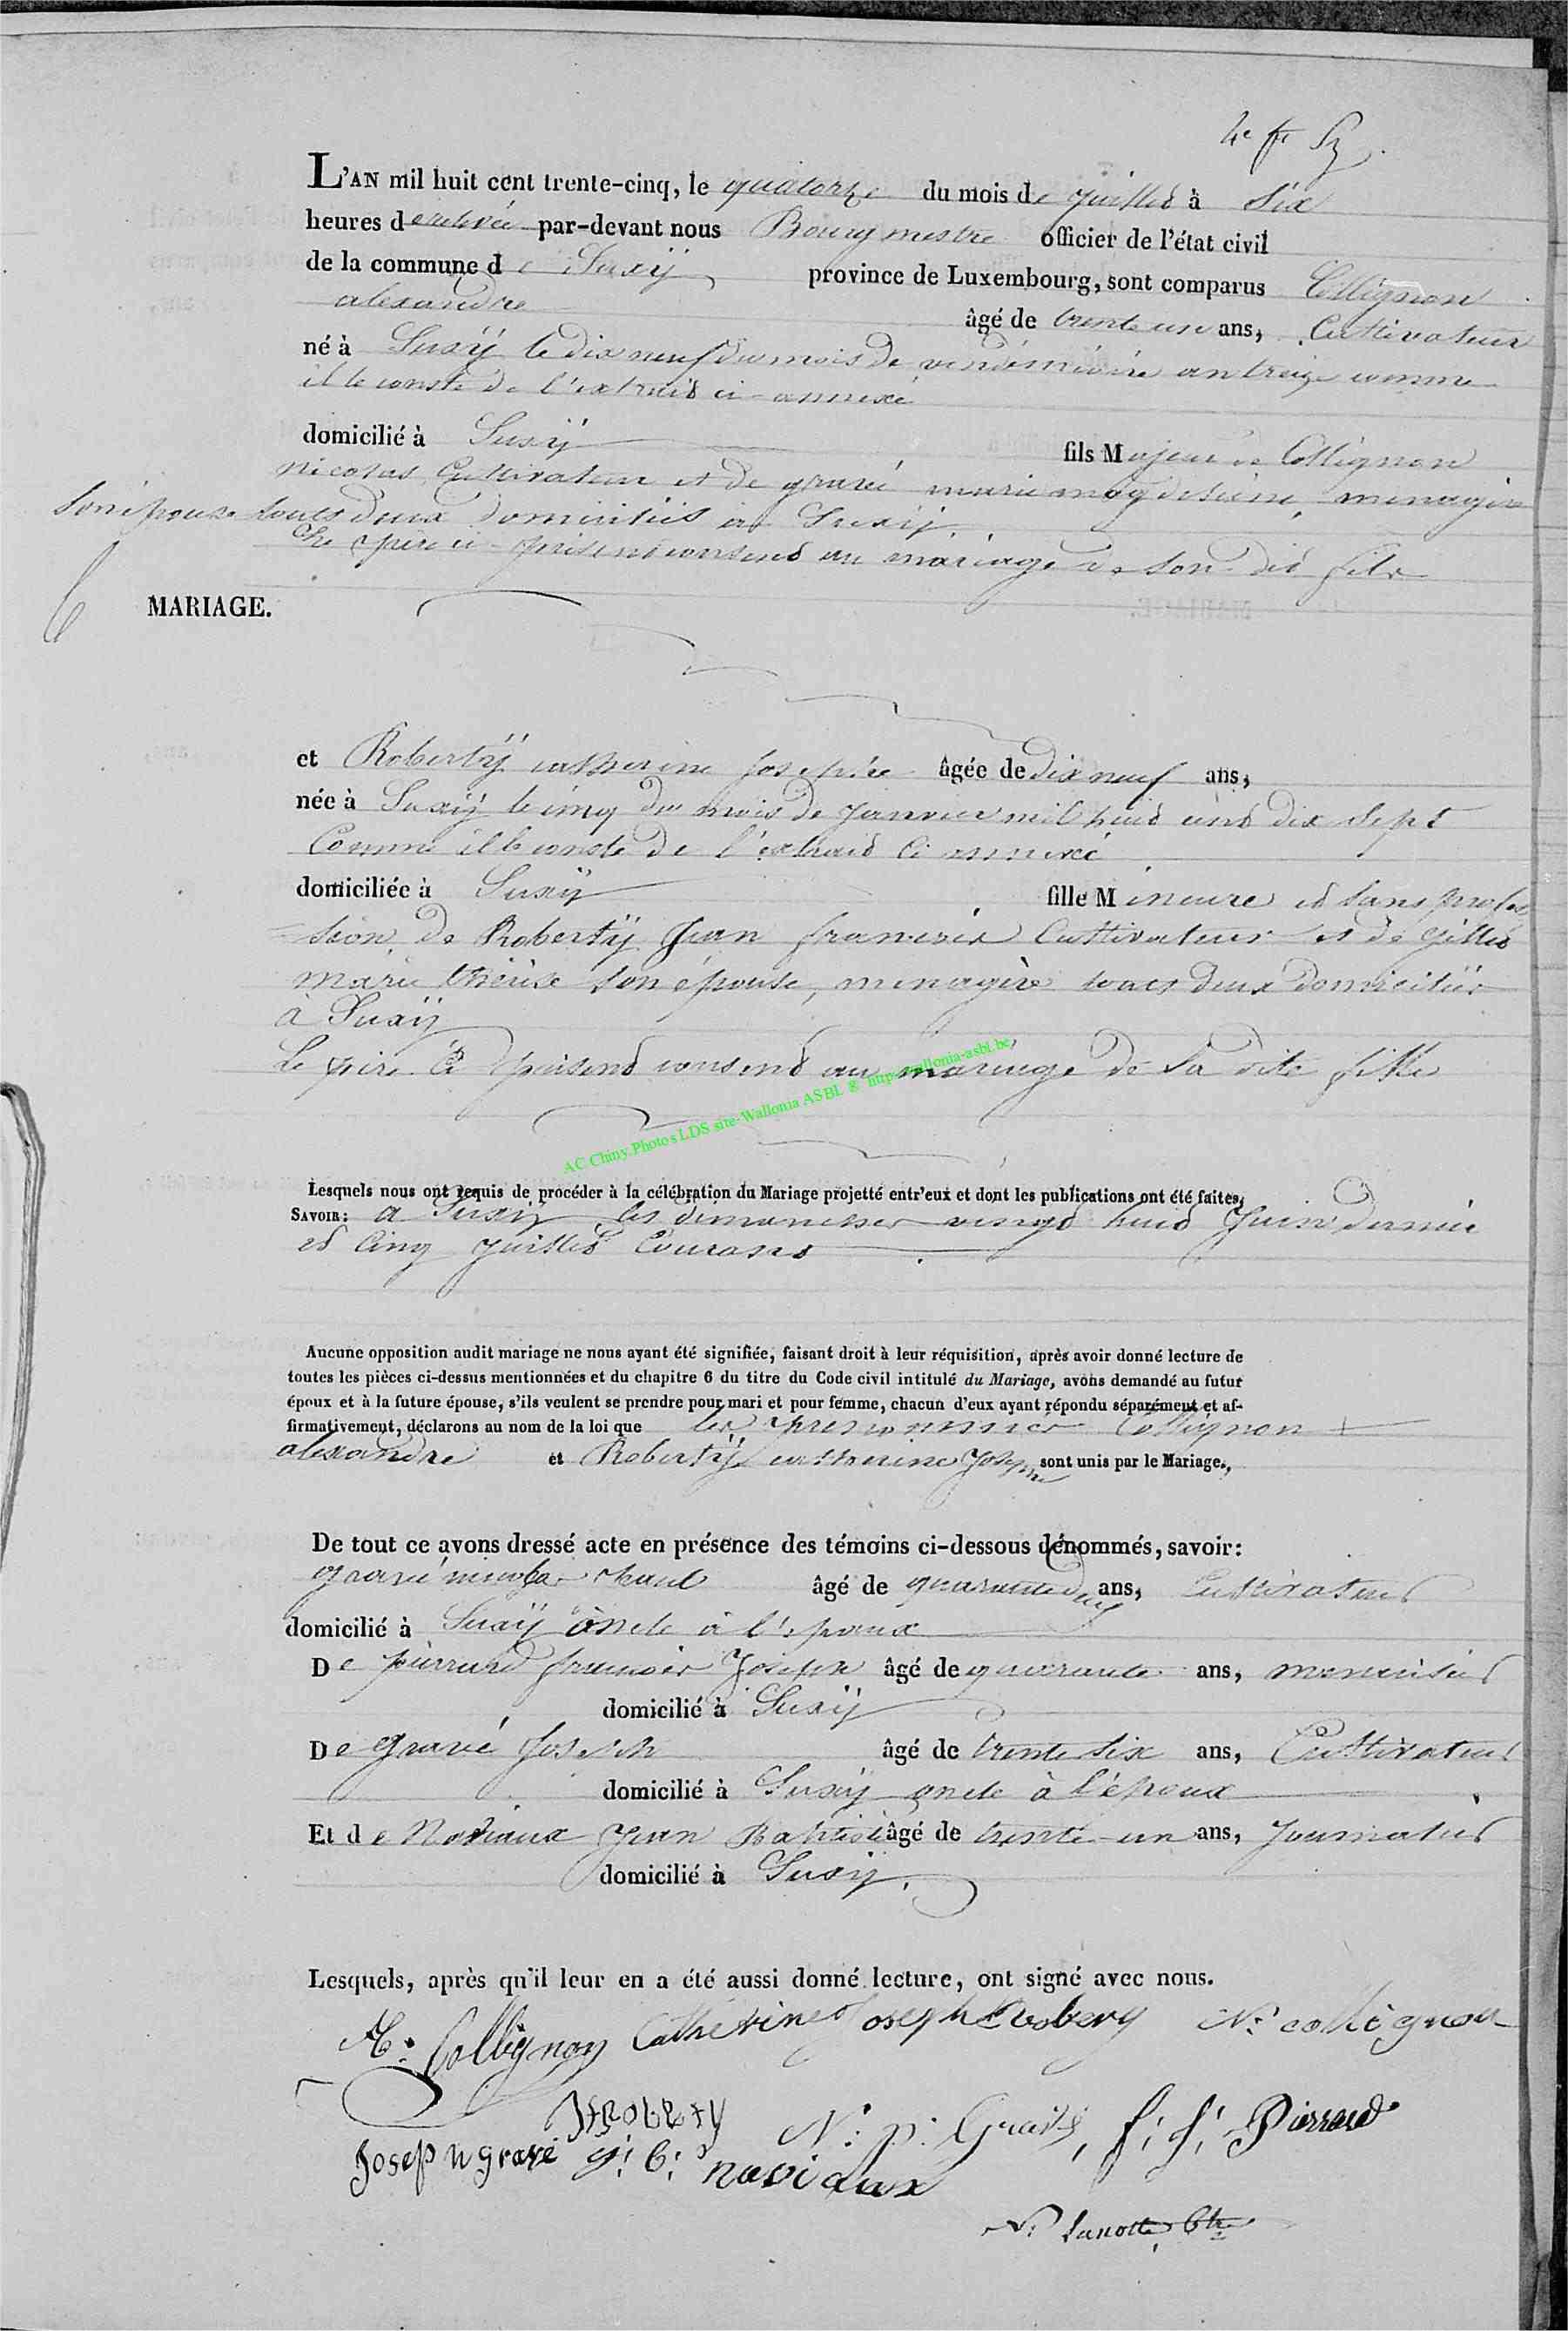 L'AN mil huit cent trente-cinq, le quatorze du mois de juillet à six
heures de relevée par-devant nous Bourgmestre officier de l'état civil
de la commune de Suxÿ province de Luxembourg, sont comparus Collignon
alexandre âgé de trente un ans, Cultivateur
né à Suxÿ le dix neuf du mois de vendémiaire an treize comme
il le conste de l'extrait ci-annexé
domicilié à Suxÿ fils Majeur de Collignon
nicolas Cultivateur et de gravé marie magdeleine, menagère
son épouse touts deux domiciliés à Suxÿ.
Le père ci-présent consent au mariage de son dit fils
6 MARIAGE.
et Robertÿ catherine josephe âgée de dix neuf ans,
née à Suxÿ le cinq du mois de janvier mil huit cent dix sept
Comme il le conste de l'extrait ci annexé
domiciliée à Suxÿ fille Mineure et sans profes
sion de Robertÿ Jean francois Cultivateur et de gillet
marie thérèse son épouse, menagère touts deux domiciliés
à Suxÿ
Le père ci présent consent au mariage de sa dite fille
AC Chiny Photos LDS site-Wallonia ASBL @ http://wallonia-asbl.be/
Lesquels nous ont requis de procéder à la célébration du Mariage projetté entr'eux et dont les publications ont été faites,
SAVOIR: a Suxÿ les dimanches vingt huit Juin dernier
et Cinq juillet Courant
Aucune opposition audit mariage ne nous ayant été signifiée, faisant droit à leur réquisition, après avoir donné lecture de
toutes les pièces ci-dessus mentionnées et du chapitre 6 du titre du Code civil intitulé du Mariage, avons demandé au futur
époux et à la future épouse, s'ils veulent se prendre pour mari et pour femme, chacun d'eux ayant répondu séparément et af-
firmativement, déclarons au nom de la loi que les prénommés Collignon
alexandre et Robertÿ catherine Josephe sont unis par le Mariage.,
De tout ce avons dressé acte en présence des témoins ci-dessous dénommés, savoir:
gravé nicolas âgé de quarante deux ans, Cultivateur
domicilié à Suxÿ oncle à l'epoux
De pierrard francois Joseph âgé de quarante ans, menuisier
domicilié à Suxÿ
De gravé Joseph âgé de trente six ans, Cultivateur
domicilié à Suxÿ oncle à l'époux
Et de Noviaux Jean Baptiste âgé de trente-un ans, Journalier
domicilié à Suxÿ.
Lesquels, après qu'il leur en a été aussi donné lecture, ont signé avec nous.
A: Collignon Catherine Joseph Robery N: collignon
JfRobRty N: p: Gravé, f: J: Pierrard
Joseph gravé j: b: noviaux
N: Lanotte,